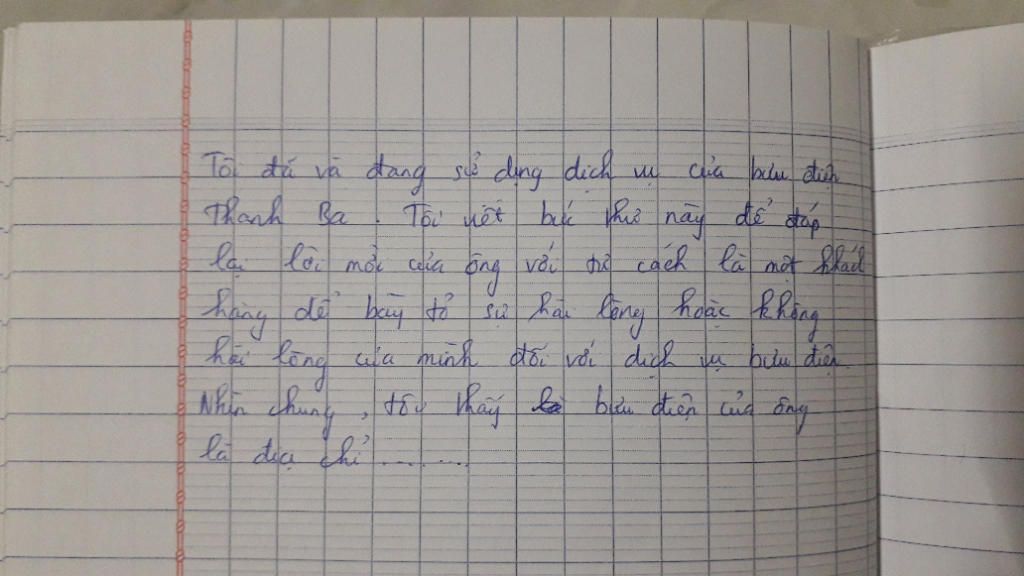 Tôi đã và đang sử dụng dịch vụ của bưu điện
Thanh Ba. Tôi viết bức thư này để đáp
lại lời mời của ông với tư cách là một khách
hàng để bày tỏ sự hài lòng hoặc không
hài lòng của mình đối với dịch vụ bưu điện.
Nhìn chung, tôi thấy bưu điện của ông
là địa chỉ ..........